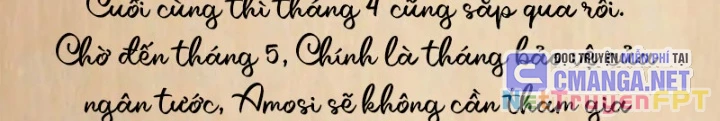 Cuối cùng thì tháng 4 cũng sắp qua rồi.
Chờ đến tháng 5, Chính là tháng
ngân tước, Amosi sẽ không cần tham gia
ĐỌC TRUYỆN MIỄN PHÍ TẠI
CMANGA.NET
NetTruyenFPT